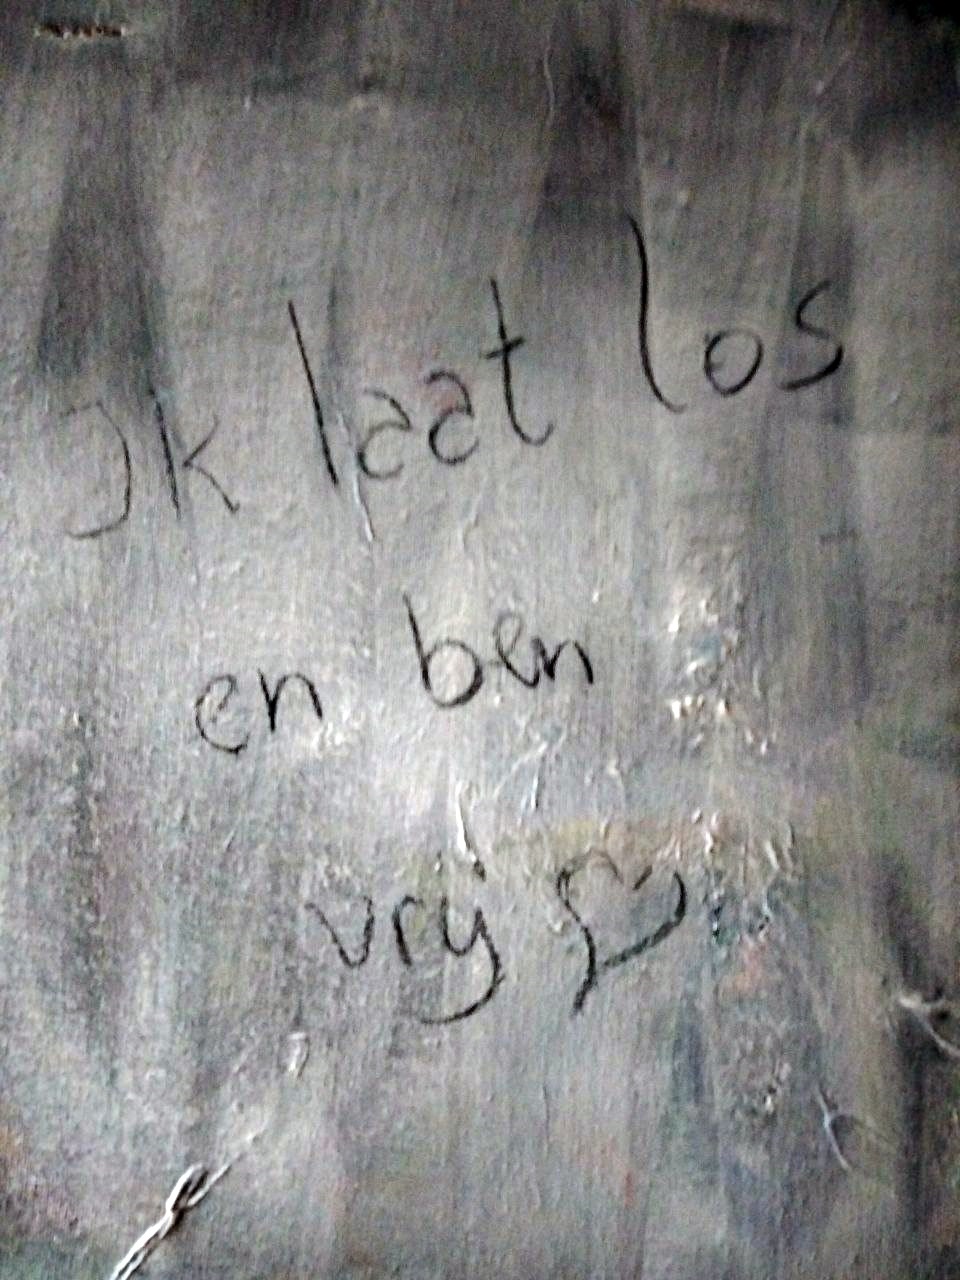 Ik laat los
en ben
vrij ♡